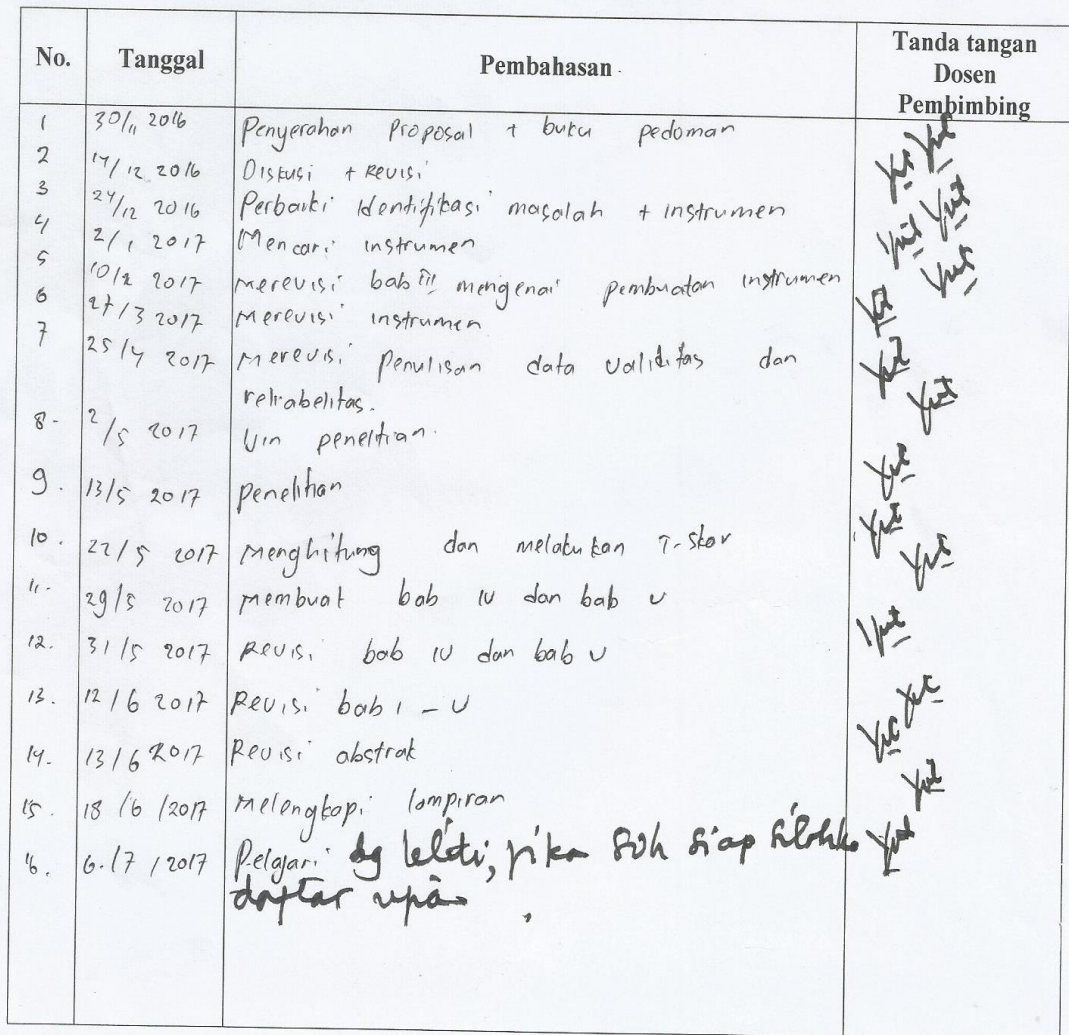 No. Tanggal Pembahasan Tanda tangan
Dosen
Pembimbing
1 30/11 2016 Penyerahan Proposal + buku pedoman
2 14/12 2016 Diskusi + Revisi
3 24/12 2016 Perbaiki Identifikasi masalah + instrumen
4 2/1 2017 Mencari instrumen
5 10/2 2017 merevisi bab III mengenai pembuatan instrumen
6 27/3 2017 Merevisi instrumen
7 25/4 2017 Merevisi penulisan data validitas dan
reliabelitas.
8- 2/5 2017 penelitian.
9. 13/5 2017 penelitian
10. 22/5 2017 menghitung dan melakukan T-Skor
11. 29/5 2017 membuat bab IV dan bab V
12. 31/5 2017 Revisi bab IV dan bab V
13. 12/6 2017 Revisi bab I - V
14. 13/6 2017 Revisi abstrak
15. 18/6/2017 Melengkapi lampiran
16. 6/7/2017 Pelajari dg jika siap
daftar